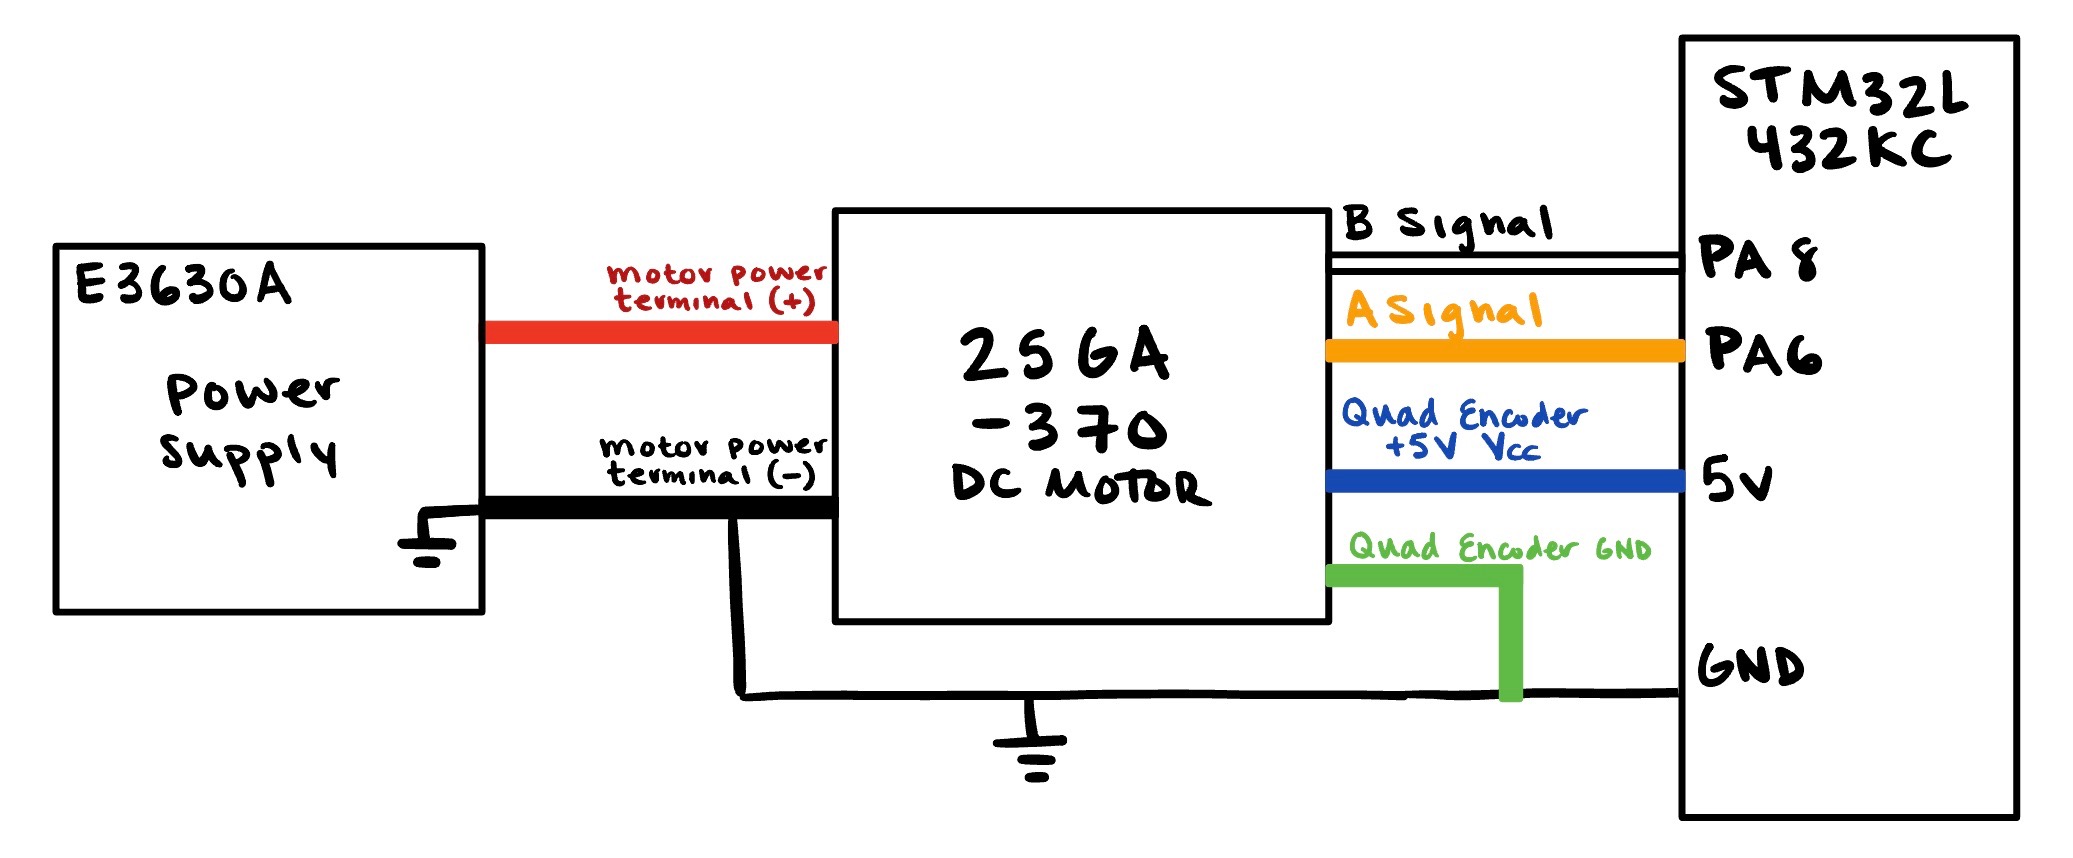 E3630A
Power
Supply
motor power
terminal (+)
motor power
terminal (-)
25GA
-370
DC MOTOR
B Signal
A Signal
Quad Encoder
+5V Vcc
Quad Encoder GND
STM32L
432KC
PA 8
PA6
5V
GND